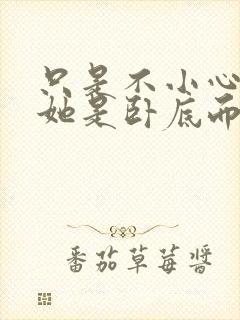 只是不小心
她是卧底而
番茄草莓酱